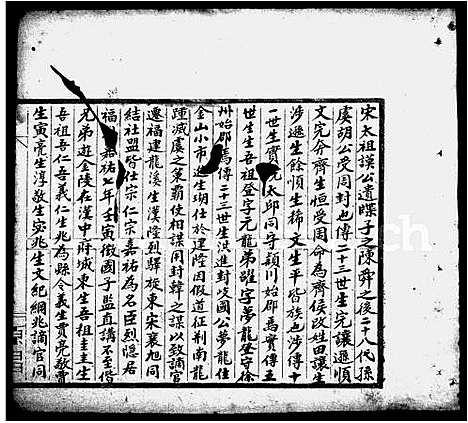 宋太祖謨公遺牒子之陳舜之後二十八代孫
虞胡公受周封也傳二十三世生完讓遜順
文完今齊生恒受周命為齊侯改姓田讓生
涉遜生餘順生稀文生平皆族也涉傳十
一世生實太邱同守潁川始郡焉實傳五
世生生吾祖登字元龍弟躍字夢龍登守徐
州始郡焉傳二十三世生洪進封岐國公夢龍住
金山小市進生瑚仕於建陸因假道征荆南龍
踵減虞之策霸使相謀用封韓之謀以致謫官
遷福建龍溪生漢陸烈驛旋東宋襄旭同
結社盟皆仕宗仁宗嘉祐為名臣烈隱居
福嘉祐七年壬寅徵國子監直講不至偕
兄弟遊金陵在漢中府城東生吾祖圭圭生
吾祖吾仁吾義仁生兆為縣令義生貫亮敬貫
生寅亭生淳敬生宓兆生文紀綱兆謫官同